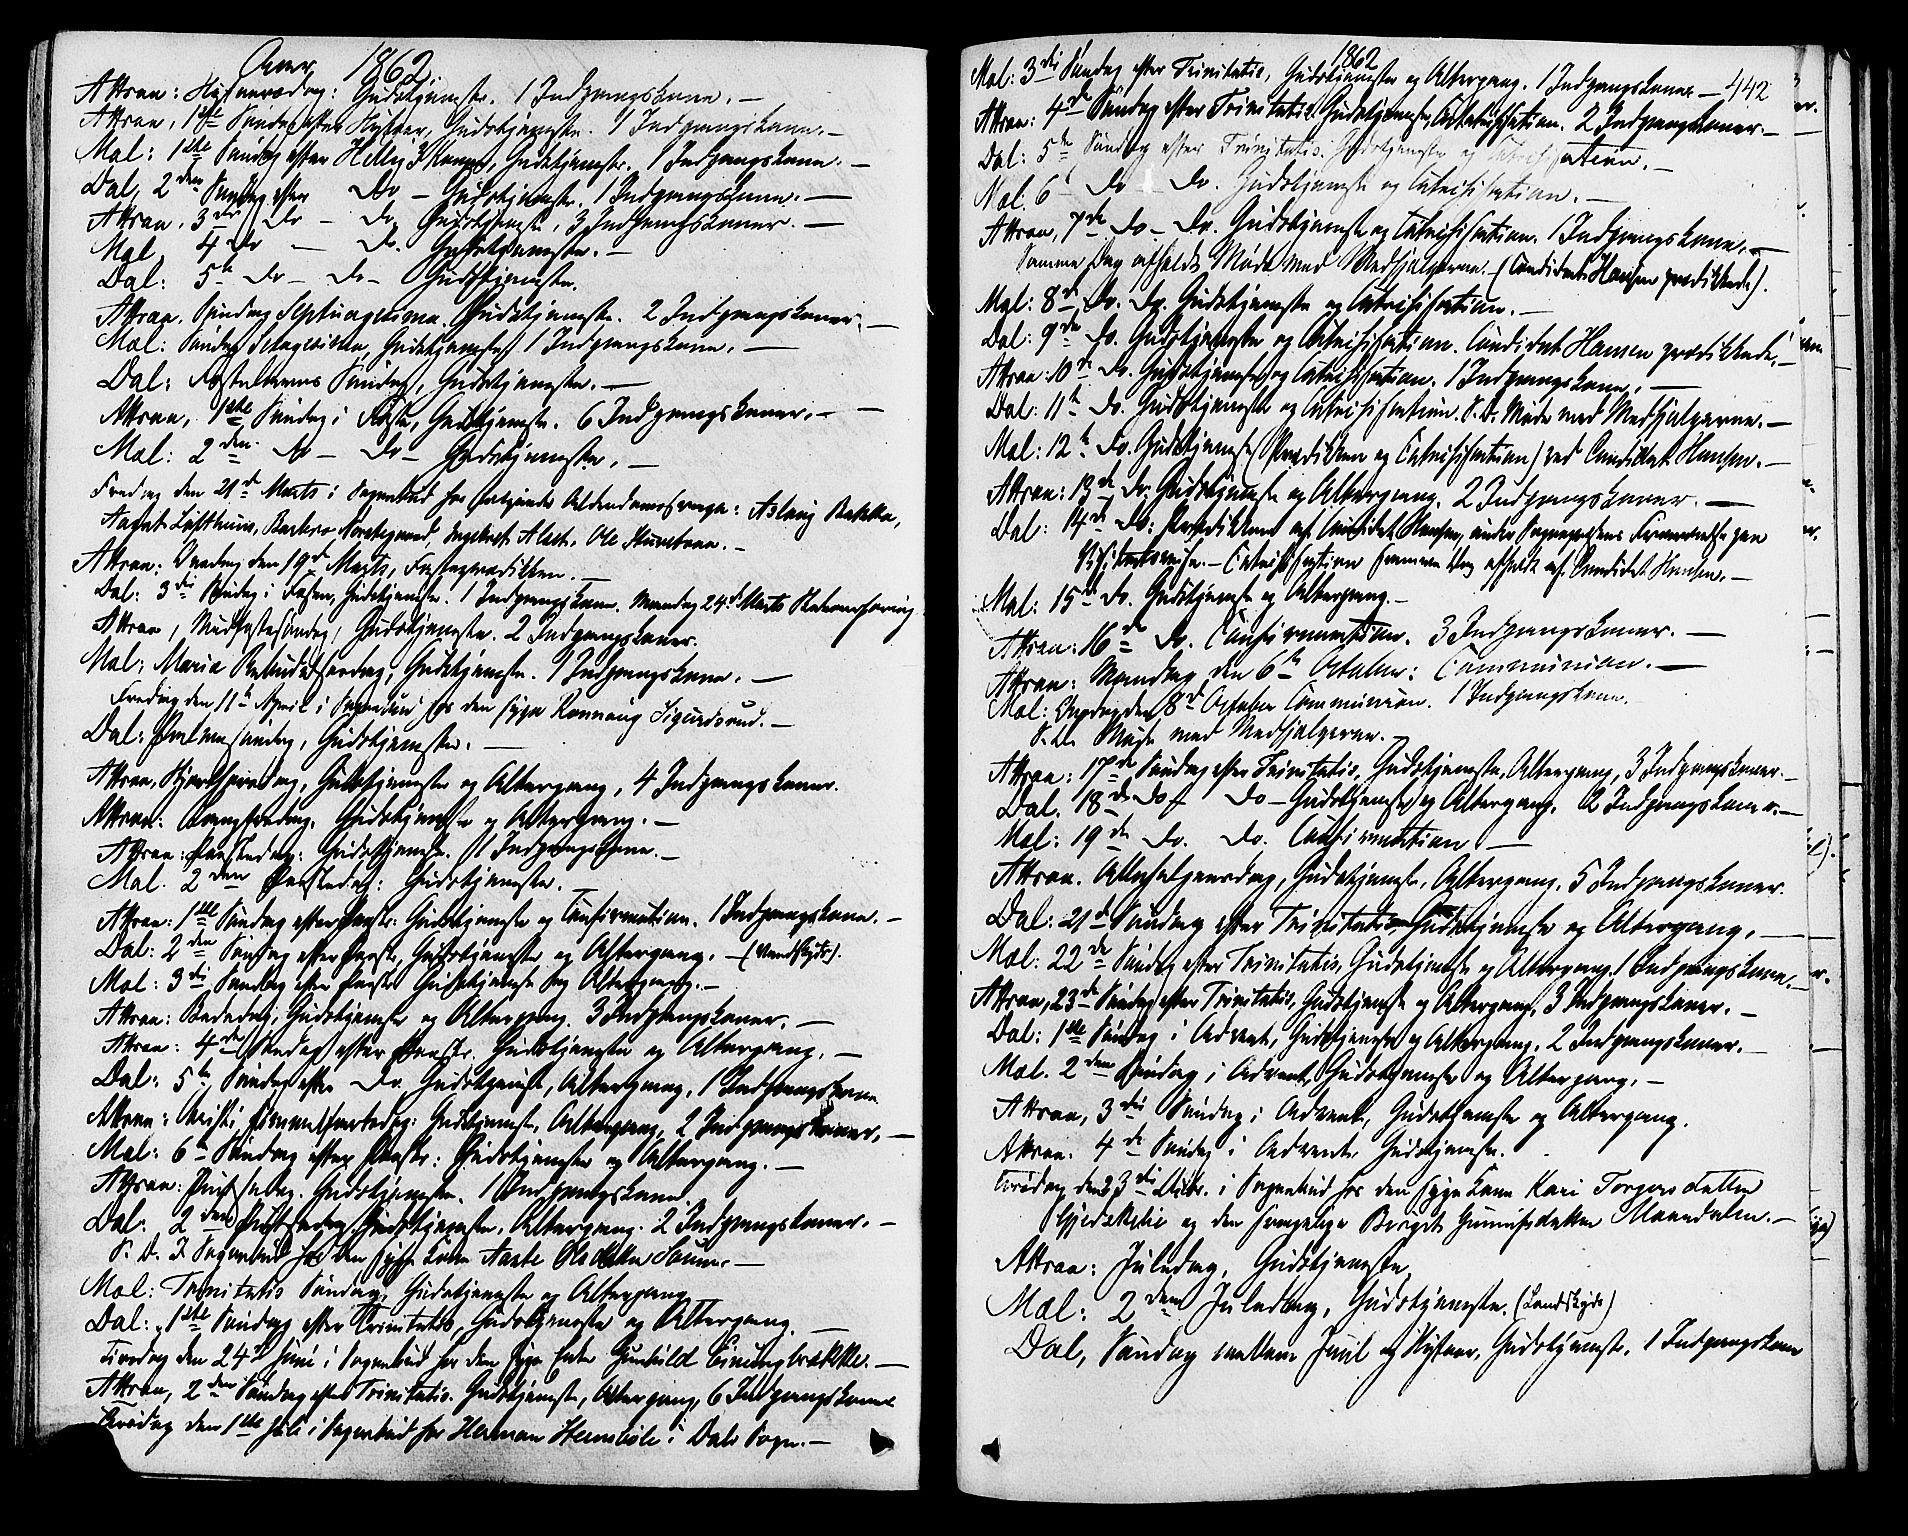 Anno 1862
Attraa: Nytaarsdag: Gudstjeneste. 1 Indgangskone. —
Attraa, 1ste Søndag efter Nytaar, Gudstjeneste. 1 Indgangskone. —
Mæl: 1ste Søndag efter Hellig 3 Konger, Gudstjeneste. 1 Indgangskone. —
Dal, 2den Søndag efter Do — Gudstjeneste. 1 Indgangskone. —
Attraa, 3die Do — Do. Gudstjeneste, 3 Indgangskoner. —
Mæl, 4 Do — Do. Gudstjeneste. —
Dal: 5te Do — Do — Gudstjeneste.
Attraa. Søndag Septuagesima. Gudstjeneste. 2 Indgangskoner. —
Mæl: Søndag Sexagesima, Gudstjeneste 1 Indgangskone. —
Dal: Fastelavns Søndag, Gudstjeneste. —
Attraa, 1ste Søndag i Faste, Gudstjeneste. 6 Indgangskoner. —
Mæl: 2den Do — Do — Gudstjeneste. —
Fredag den 21de Marts i Sognebud hos Aslaug Bakka,
Aagat Lofthuus, Ole
Attraa: Onsdag den 19de Marts, Fasteprædiken. —
Dal: 3die Søndag i Fasten, Gudstjeneste. 1 Indgangskone. Mandag 24de Marts
Attraa, Midfastesøndag, Gudstjeneste. 2 Indgangskoner.
Mæl: Maria Bebudelsesdag, Gudstjeneste. 1 Indgangskone. —
Fredag den 11te April i Sognebud hos den syge Rannaug Sigurdsrud. —
Dal: Palmesøndag, Gudstjeneste. —
Attraa, Skjærthorsdag, Gudstjeneste og Altergang, 4 Indgangskoner.
Attraa: Langfredag. Gudstjeneste og Altergang. —
Attraa: Paaskedag: Gudstjeneste. 1 Indgangskone. —
Mæl. 2den Paaskedag: Gudstjeneste. —
Attraa: 1ste Søndag efter Paaske: Gudstjeneste og Confirmation. 1 Indgangskone. —
Dal: 2den Søndag efter Paaske, Gudstjeneste og Altergang. — (Vandskyds).
Mæl: 3die Søndag efter Paaske Gudstjeneste og Altergang. —
Attraa: Bededag, Gudstjeneste og Altergang. 3 Indgangskoner. —
Attraa: 4de Søndag efter Paaske. Gudstjeneste og Altergang. —
Dal: 5te Søndag efter Do. Gudstjeneste, Altergang. 1 Indgangskone
Attraa: Christi Himmelfartsdag: Gudstjeneste, Altergang, 2 Indgangskoner. —
Mæl: 6te Søndag efter Paaske: Gudstjeneste og Altergang. —
Attraa: Pintsedag. Gudstjeneste. 1 Indgangskone.
Dal: 2den Pintsedag Gudstjeneste, Altergang. 2 Indgangskoner. —
S. D. I Sognebud hos den syge Kone Aaste Olsdatter —
Mæl: Trinitatis Søndag, Gudstjeneste og Altergang
Dal: 1ste Søndag efter Trinitatis, Gudstjeneste og Altergang. —
Tirsdag den 24de Juni i Sognebud hos den syge Enke Gunhild —
Attraa, 2den Søndag efter Trinitatis. Gudstjeneste, Altergang, 6 Indgangskoner
Tirsdag den 1ste Juli i Sognebud hos Herman i Dals Sogn. —
1862
442
Mæl: 3die Søndag efter Trinitatis, Gudstjeneste og Altergang. 1 Indgangskone —
Attraa: 4de Søndag efter Trinitatis. Gudstjeneste, Catechisation. 2 Indgangskoner. —
Dal: 5te Søndag efter Trinitatis. Gudstjeneste og Catechisation. —
Mæl. 6te Do Do. Gudstjeneste og Catechisation. —
Attraa, 7de Do — Do. Gudstjeneste og Catechisation. 1 Indgangskone. —
Samme Dag afholdt Møde med Medhjælperne. (Candidat Hansen prædikede).
Mæl: 8de Do. Do. Gudstjeneste og Catechisation. —
Dal: 9de Do. Gudstjeneste og Catechisation. Candidat Hansen prædikede. —
Attraa: 10de Do. Gudstjeneste og Catechisation. 1 Indgangskone. —
Dal: 11te Do. Gudstjeneste og Catechisation. S. D. Møde med Medhjælperne. —
Mæl: 12te Do. Gudstjeneste (Prædiken og Catechisation) ved Candidat Hansen. —
Attraa: 13de Do. Gudstjeneste og Altergang. 2 Indgangskoner. —
Dal: 14de Do: Prædiken af Candidat Hansen, under Sognepræstens Fraværelse paa
Visitatsreise. — Catechisation samme Dag afholdt af Candidat Hansen. —
Mæl: 15de Do. Gudstjeneste og Altergang. —
Attraa: 16de Do. Confirmation. 3 Indgangskoner. —
Attraa: Mandag den 6te October: Communion. —
Mæl: Onsdag den 8de October Communion. 1 Indgangskone.
S. D. Møde med Medhjælperne. —
Attraa: 17de Søndag efter Trinitatis, Gudstjeneste, Altergang, 3 Indgangskoner. —
Dal. 18de Do — Do — Gudstjeneste og Altergang. 2 Indgangskoner. —
Mæl: 19de Do. Do. Confirmation —
Attraa. Allehelgensdag, Gudstjeneste, Altergang. 5 Indgangskoner.
Dal: 21de Søndag efter Trinitatis Gudstjeneste og Altergang. —
Mæl: 22de Søndag efter Trinitatis, Gudstjeneste og Altergang. 1 Indgangskone. —
Attraa, 23de Søndag efter Trinitatis, Gudstjeneste og Altergang, 3 Indgangskoner. —
Dal: 1ste Søndag i Advent, Gudstjeneste og Altergang. 2 Indgangskoner. —
Mæl. 2den Søndag i Advent, Gudstjeneste og Altergang. —
Attraa, 3die Søndag i Advent, Gudstjeneste og Altergang.
Attraa. 4de Søndag i Advent. Gudstjeneste.
Tirsdag den 23die Decbr. i Sognebud hos den syge Kone Kari Torgersdatter
og den sengeliggende Birgit Gunulfsdatter Maandalen. —
Attraa: Juledag, Gudstjeneste.
Mæl: 2den Juledag, Gudstjeneste. (Landskyds)
Dal, Søndag mellem Juul og Nytaar, Gudstjeneste. 1 Indgangskone